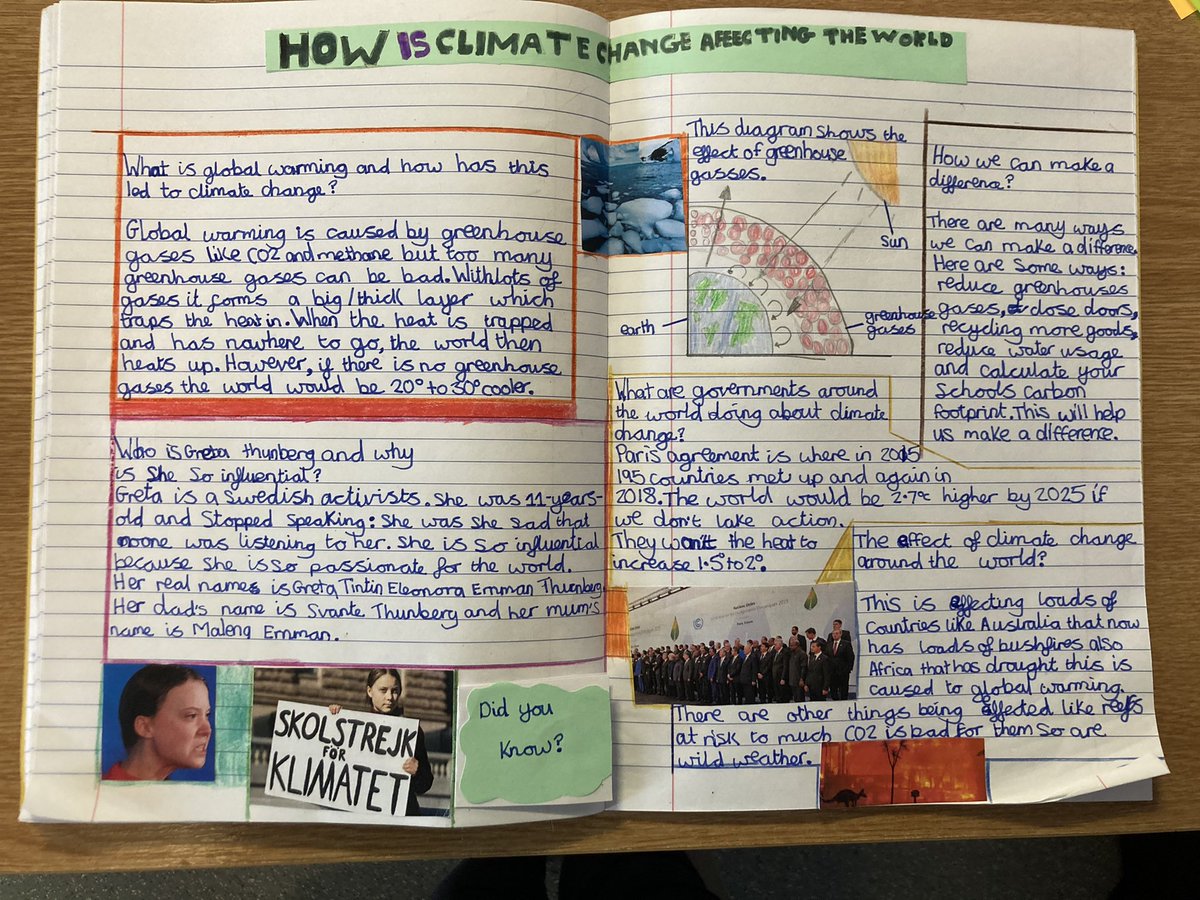 HOW IS CLIMATE CHANGE AFEECTING THE WORLD
What is global warming and how has this
led to climate change?
Global warming is caused by greenhouse
gases like CO2 and methane but too many
greenhouse gases can be bad. With lots of
gases it forms a big/thick layer which
traps the heat in. When the heat is trapped
and has nowhere to go, the world then
heats up. However, if there is no greenhouse
gases the world would be 20° to 30° cooler.
Who is Greta thunberg and why
is She So influential?
Greta is a Swedish activists. She was 11-years-
old and Stopped Speaking: She was She sad that
noone was listening to her. She is so influential
because She is so passionate for the world.
Her real names is Greta Tintin Eleonora Emman Thunberg.
Her dad's name is Svante Thunberg and her mum's
name is Maleng Emman.
SKOLSTREJK
FÖR
KLIMATET
Did you
Know?
This diagram shows the
effect of greenhouse
gasses.
Sun
earth
greenhouse
gases
How we can make a
difference?
There are many ways
we can make a difference.
Here are Some ways:
reduce greenhouses
gases, close doors,
recycling more goods,
reduce water usage
and calculate your
Schools carbon
footprint. This will help
us make a difference.
What are governments around
the world doing about climate
change?
Paris agreement is where in 2015
195 countries met up and again in
2018. The world would be 2.7°c higher by 2025 if
we don't take action.
They want the heat to
increase 1.5° to 2°.
The effect of climate change
around the world?
This is effecting loads of
Countries like Australia that now
has loads of bushfires also
Africa that has drought this is
caused to global warming.
There are other things being affected like reefs
at risk to much CO2 is bad for them So are
wild weather.